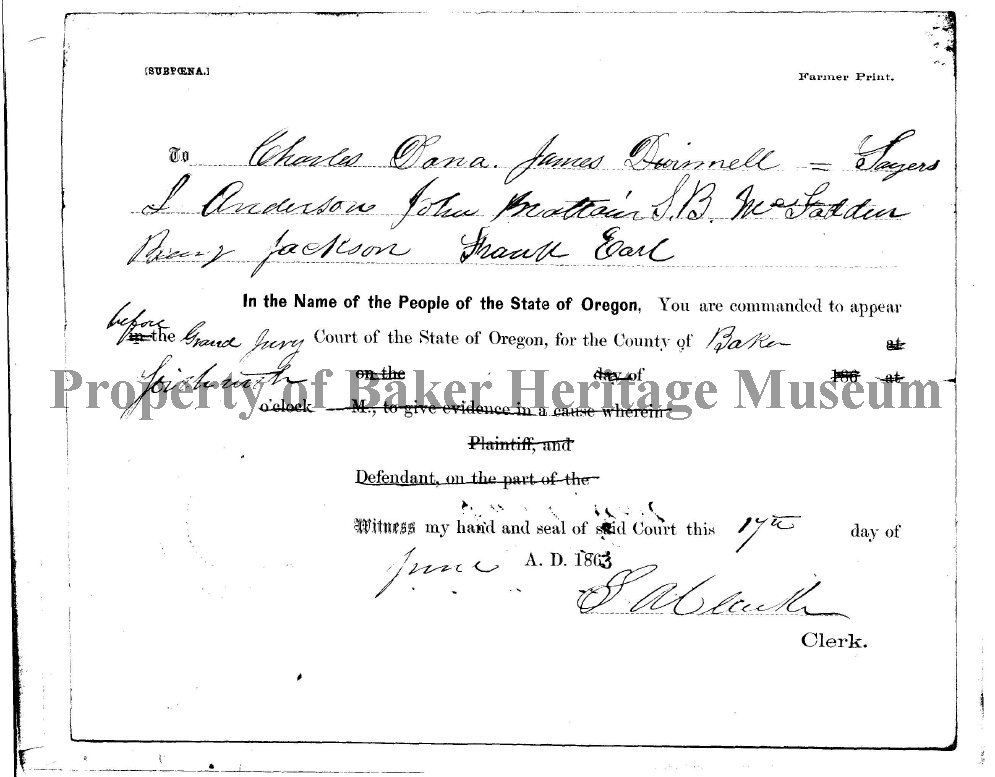 [SUBPŒNA.]
Farmer Print.
To Charles Dana. James Dwinnell = Sayers
I Anderson John Brattain S. B. McFadden
Jackson Frank Earl
In the Name of the People of the State of Oregon, You are commanded to appear
before
in the Grand Jury Court of the State of Oregon, for the County of Baker at
forthwith on the day of 186 at
Property of Baker Heritage Museum
o'clock M., to give evidence in a cause wherein
Plaintiff, and
Defendant, on the part of the
Witness my hand and seal of said Court this 17th day of
June A. D. 1863
S A Clarke
Clerk.